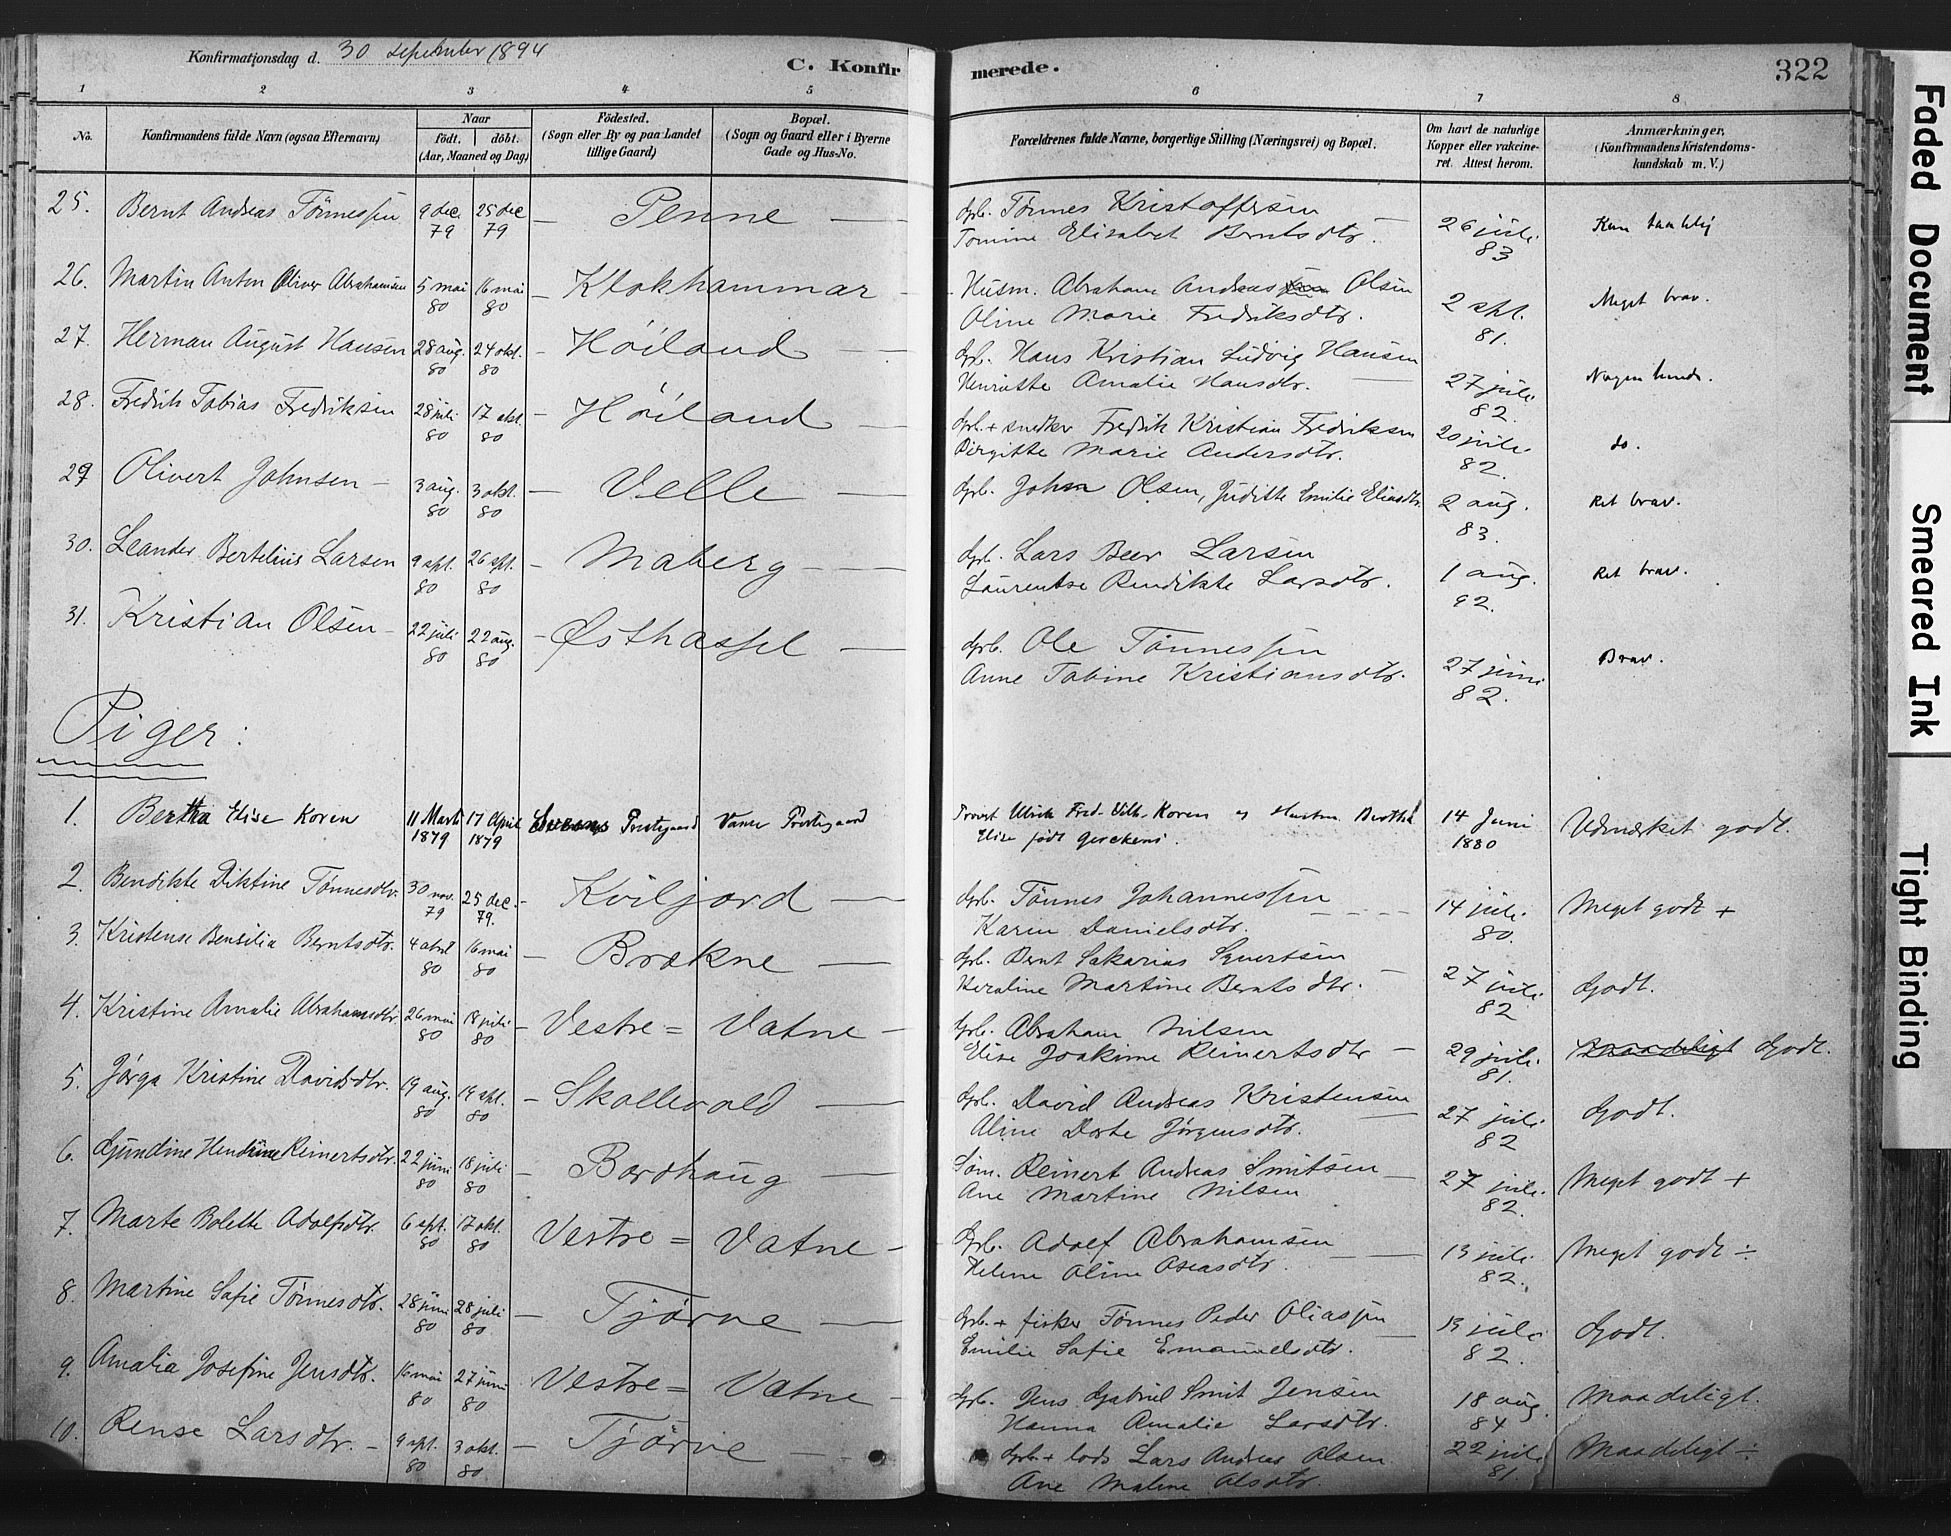 Konfirmationsdag d. 30 september 1894
C. Konfirmerede.
322
1 2 3 4 5 6 7 8
No.
Konfirmandens fulde Navn (ogsaa Efternavn)
Naar
født. døbt.
(Aar, Maaned og Dag)
Fødested.
(Sogn eller By og paa Landet
tillige Gaard)
Bopæl.
(Sogn og Gaard eller i Byerne
Gade og Hus-No.
Forældrenes fulde Navne, borgerlige Stilling (Næringsvei) og Bopæl.
Om havt de naturlige
Kopper eller vakcine-
ret. Attest herom.
Anmærkninger,
(Konfirmandens Kristendoms-
kundskab m. V.)
25. Bernt Andreas Tönnessen 9 dec. 79 25 dec 79 – Penne – Grb. Tönnes Kristoffersen
Tomine Elisabet Berntsdtr. 26 juli 83
26. Martin Anton Oliver Abrahamsen 5 mai 80 16 mai 80 – Klokhammar – Husm. Abraham Andreas Olsen
Oline Marie Fredriksdtr. 2 spt. 81. Meget brav.
27. Herman August Hansen 28 aug. 80 24 okt. 80 – Höiland – Grb. Hans Kristian Ludvig Hansen
Henriette Amalie Hansdtr. 27 juli 82
28. Fredrik Tobias Fredriksen 28 juli 80 17 okt. 80 – Höiland – Grb. + snedker Fredrik Kristian Fredriksen
Birgitte Marie Andersdtr. 20 juli 82. do.
29 Olivert Johnsen – 3 aug. 80 3 okt. 80 – Velle – Grb. John Olsen, Juditte Emilie Eliasdtr. 2 aug. 83. Ret brav.
30. Leander Bertelius Larsen 9 spt. 80 26 spt. 80 – Maberg – Grb. Lars Beer Larsen
Laurentse Bendikte Larsdtr. 1 aug. 92. Ret brav.
31. Kristian Olsen – 22 juli 80 22 aug. 80 – Østhassel – Grb. Ole Tönnessen
Anne Tobine Kristiansdtr. 27 juni 82. Brav.
Piger:
1. Bertha Elise Koren 11 Marts 1879 17 April 1879 Prestegaard Vanse Prestegaard Provst Ulrik Fred. Vilh. Koren og Hustru Berthe
Elise født Gerckens. 14 Juni 1880 Udmærket godt.
2. Bendikte Diktine Tönnesdtr. 30 nov. 79 25 dec. 79. – Kviljord – Grb. Tönnes Johannessen
Karen Danielsdtr. 14 juli 80. Meget godt +
3. Kristense Bensilia Berntsdtr. 4 april 80 16 mai 80 – Brækne – Grb. Bernt Sakarias Syvertsen
Martine Berntsdtr. 27 juli 82 Godt.
4. Kristine Amalie Abrahamsdtr. 26 mai 80 18 juli 80 – Vestre = Vatne – Grb. Abraham Nilsen
Elise Joakime Reinertsdtr – 29 juli 81. Maadeligt Godt.
5. Jörga Kristine Davidsdtr. 19 aug. 80 19 spt. 80 – Skollevold – Grb. David Andreas Kristensen
Aline Dorte Jörgensdtr. 27 juli 82 Godt.
6. Gundine Reinertsdtr. 22 juni 80 18 juli 80 – Bordhaug – Söm. Reinert Andreas Smitsen
Ane Martine Nilsen 27 juli 82. Meget godt +
7. Marte Bolette Adolfsdtr. 6 spt. 80 17 okt. 80 Vestre = Vatne – Grb. Adolf Abrahamsen
Helene Oline Oseasdtr. 13 juli 82. Meget godt ÷
8. Martine Sofie Tönnesdtr. 28 juni 80 28 juli 80 – Tjörve – Grb. + fisker Tönnes Peder Oliassen
Emilie Sofie Emanuelsdtr. 13 juli 82. Godt.
9. Amalia Josefine Jensdtr. 16 mai 80 27 juni 80 Vestre = Vatne – Grb. Jens Gabriel Smit Jensen
Hanna Amalie Larsdtr. 18 aug. 84 Maadeligt.
10. Rense Larsdtr. – 9 spt. 80 3 okt. 80 – Tjörve – Grb. + lods Lars Andreas Olsen
Ane Malene Olsdtr. 22 juli 81. Maadeligt ÷
Faded Document
Smeared Ink
Tight Binding